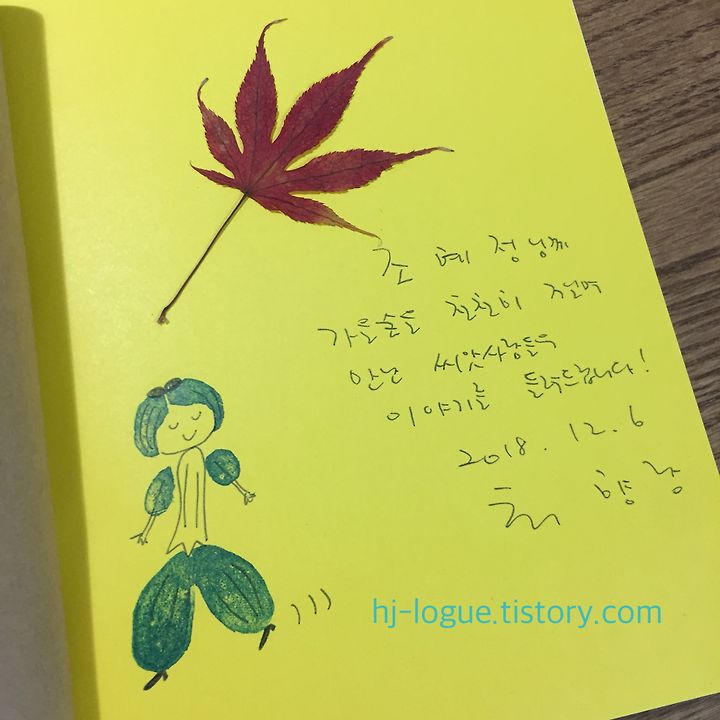 조 혜 정 님께
가을숲을 천천히 거닐며
만난 씨앗사람들의
이야기를 들려드립니다!
2018. 12. 6
최 향 랑
hj-logue.tistory.com